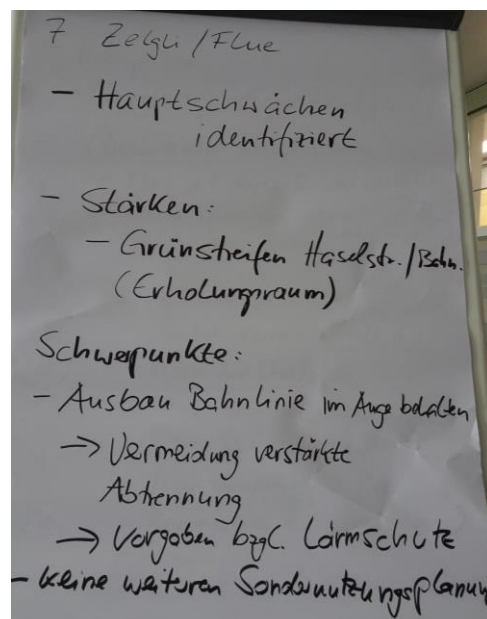 7 Zelgli / Flue
- Hauptschwächen
identifiziert
- Stärken:
- Grünstreifen Haselstr./Bahn.
(Erholungsraum)
Schwerpunkte:
- Ausbau Bahnlinie im Auge behalten
→ Vermeidung verstärkte
Abtrennung
→ Vorgaben bzgl. Lärmschutz
- keine weiteren Sondernutzungsplanun